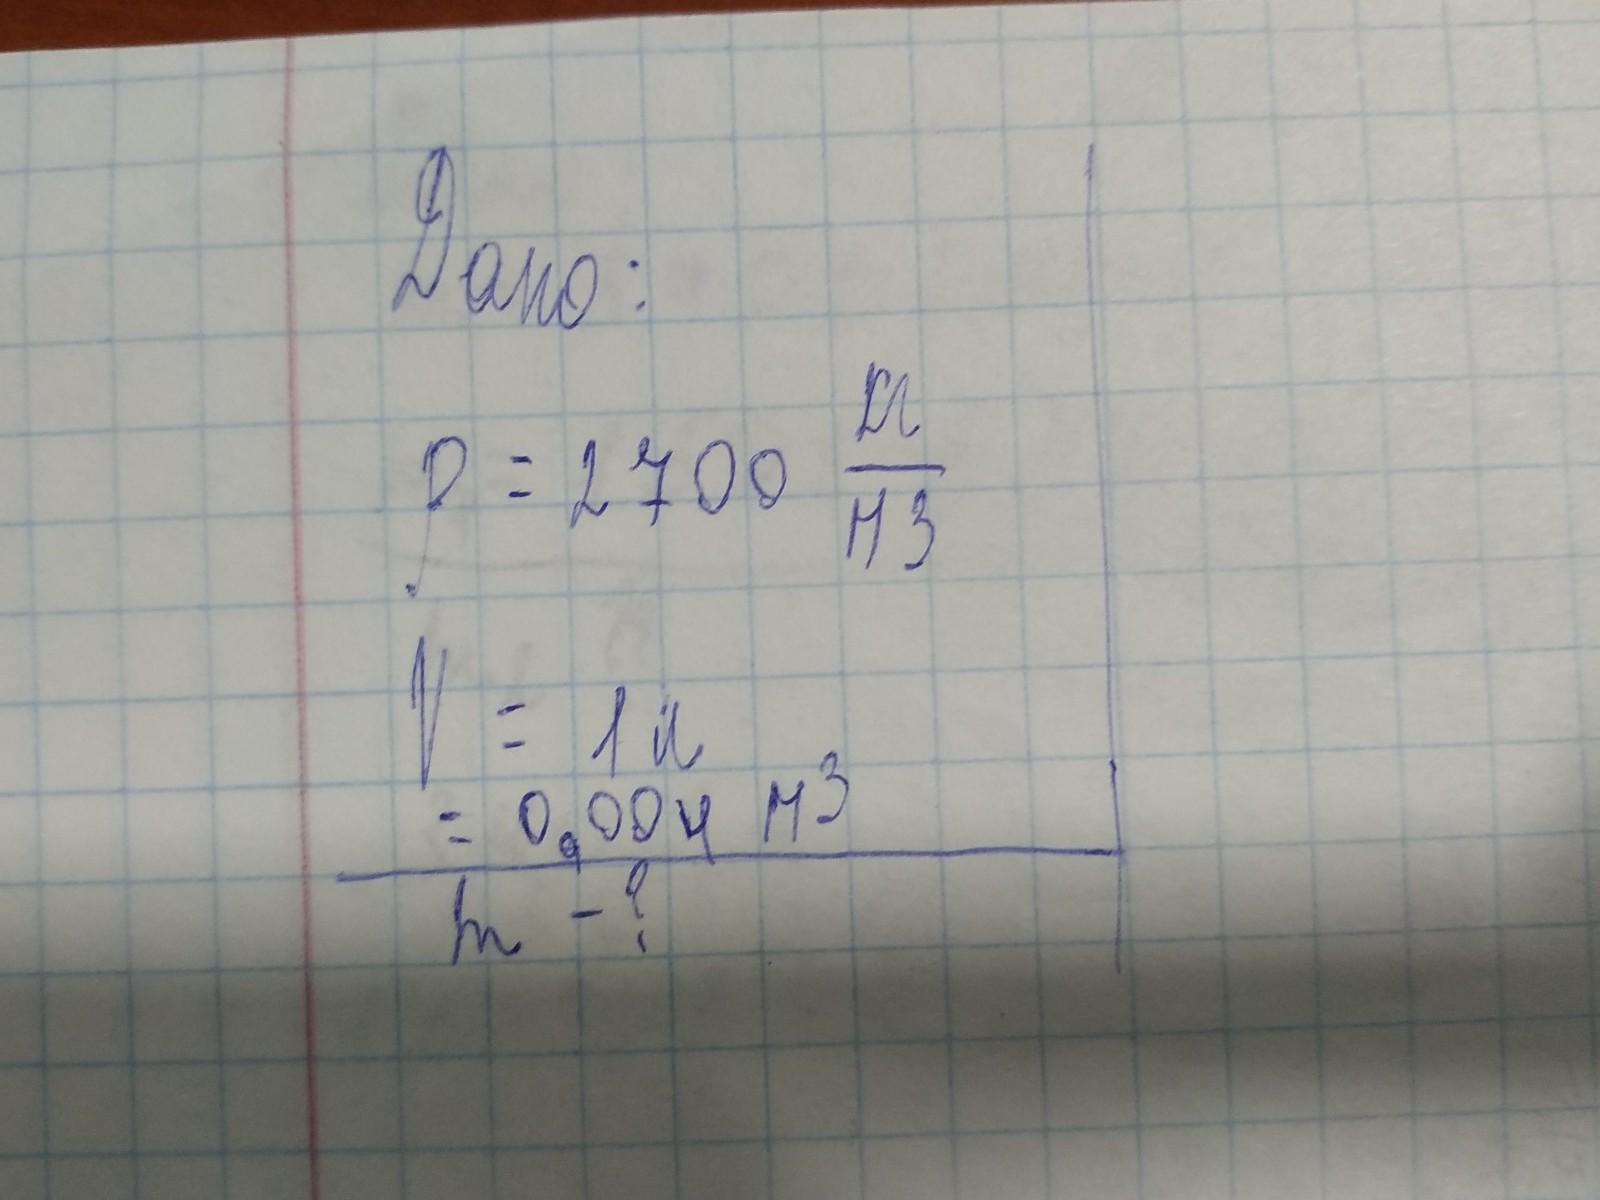 Дано:
ρ = 2700 кг/м3
V = 1 л
= 0,004 м³
m - ?